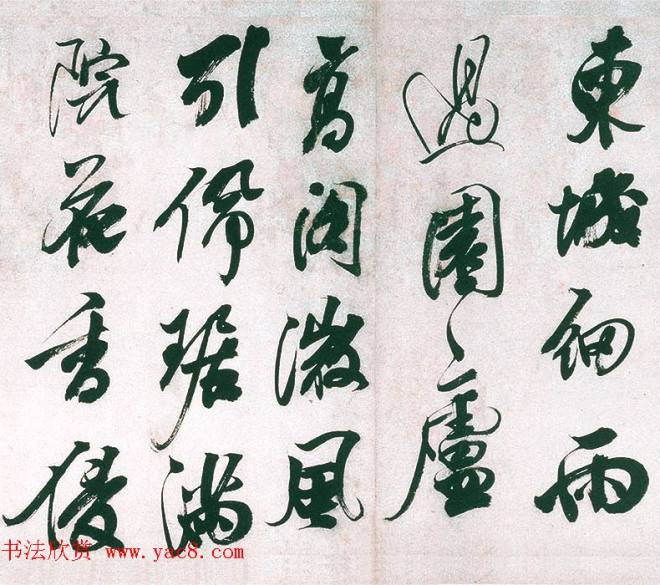 東城細雨
過園廬
高閣微風
引佩琚滿
院花香侵
书法欣赏 www.yac8.com